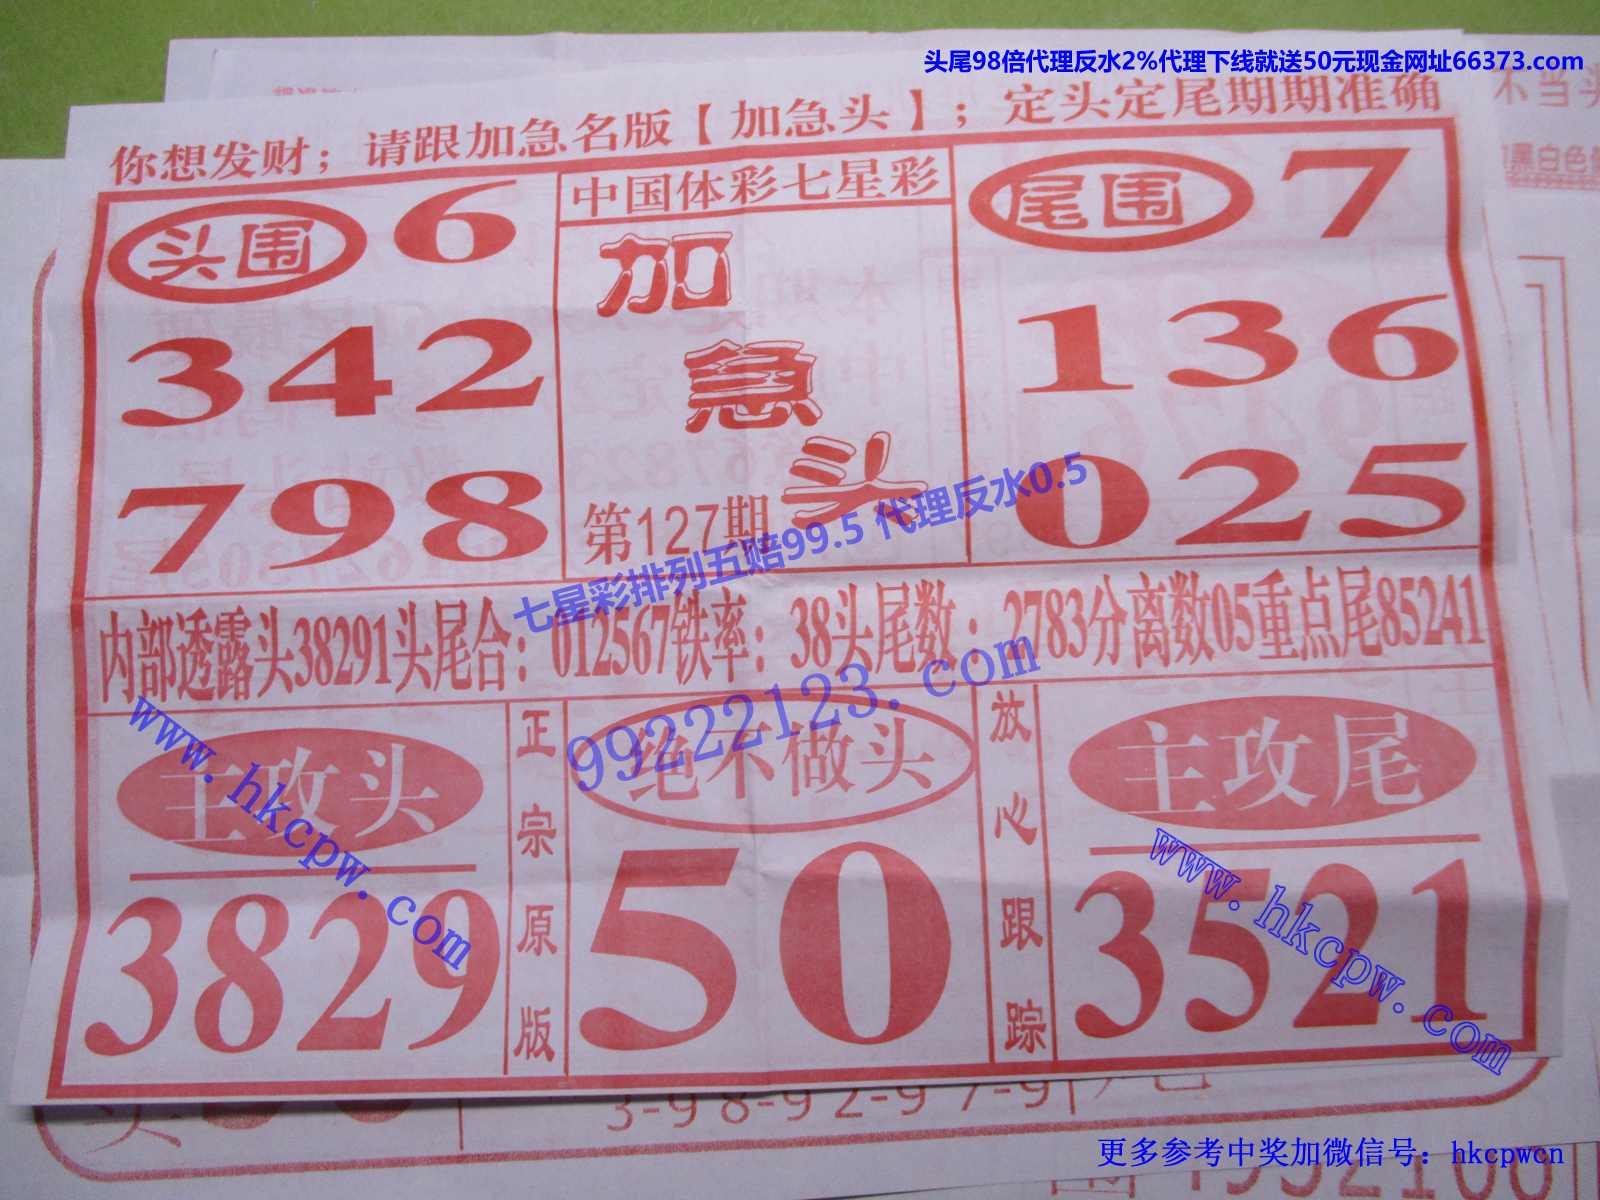 头尾98倍代理反水2%代理下线就送50元现金网址66373.com
不当头
你想发财；请跟加急名版【加急头】；定头定尾期期准确
头围 6
342
798
中国体彩七星彩
加
急
头
第127期
尾围 7
136
025
七星彩排列五赔99.5 代理反水0.5
内部透露头38291头尾合：012567铁率：38头尾数：2783分离数05重点尾85241
99222123.com
主攻头
3829
www.hkcpw.com
正宗原版
绝不做头
50
放心跟踪
主攻尾
3521
www.hkcpw.com
3-98-92-97-9
更多参考中奖加微信号：hkcpwcn